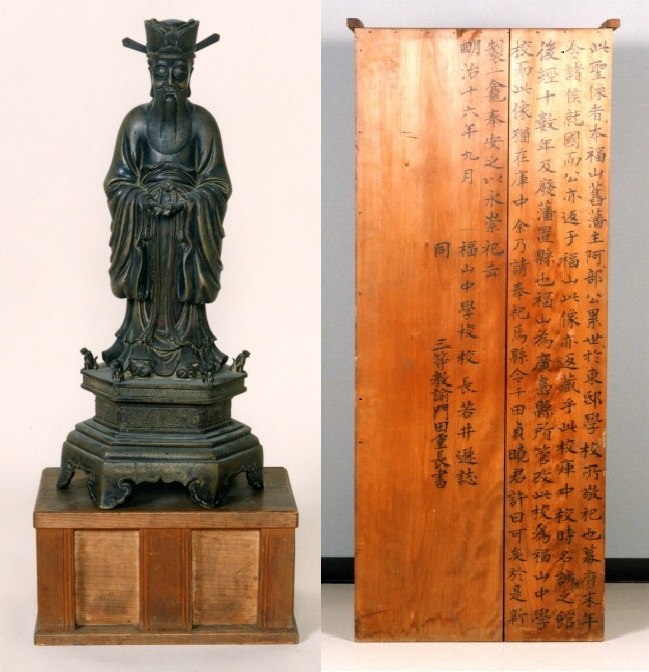 此聖像者本福山舊藩主阿部公累世於東邸學校所敬祀也幕府末年
令諸侯就國而公亦返于福山此像亦返藏乎此校庫中校時名誠之館
後經十數年及廢藩置縣也福山為廣島縣所管改此校為福山中學
校而此像猶在庫中余乃請奉祀焉縣令千田貞曉君許曰可矣於是新
製一龕奉安之以永崇祀云
明治十六年九月 福山中學校校長若井遜誌
同 三等教諭門田重長書